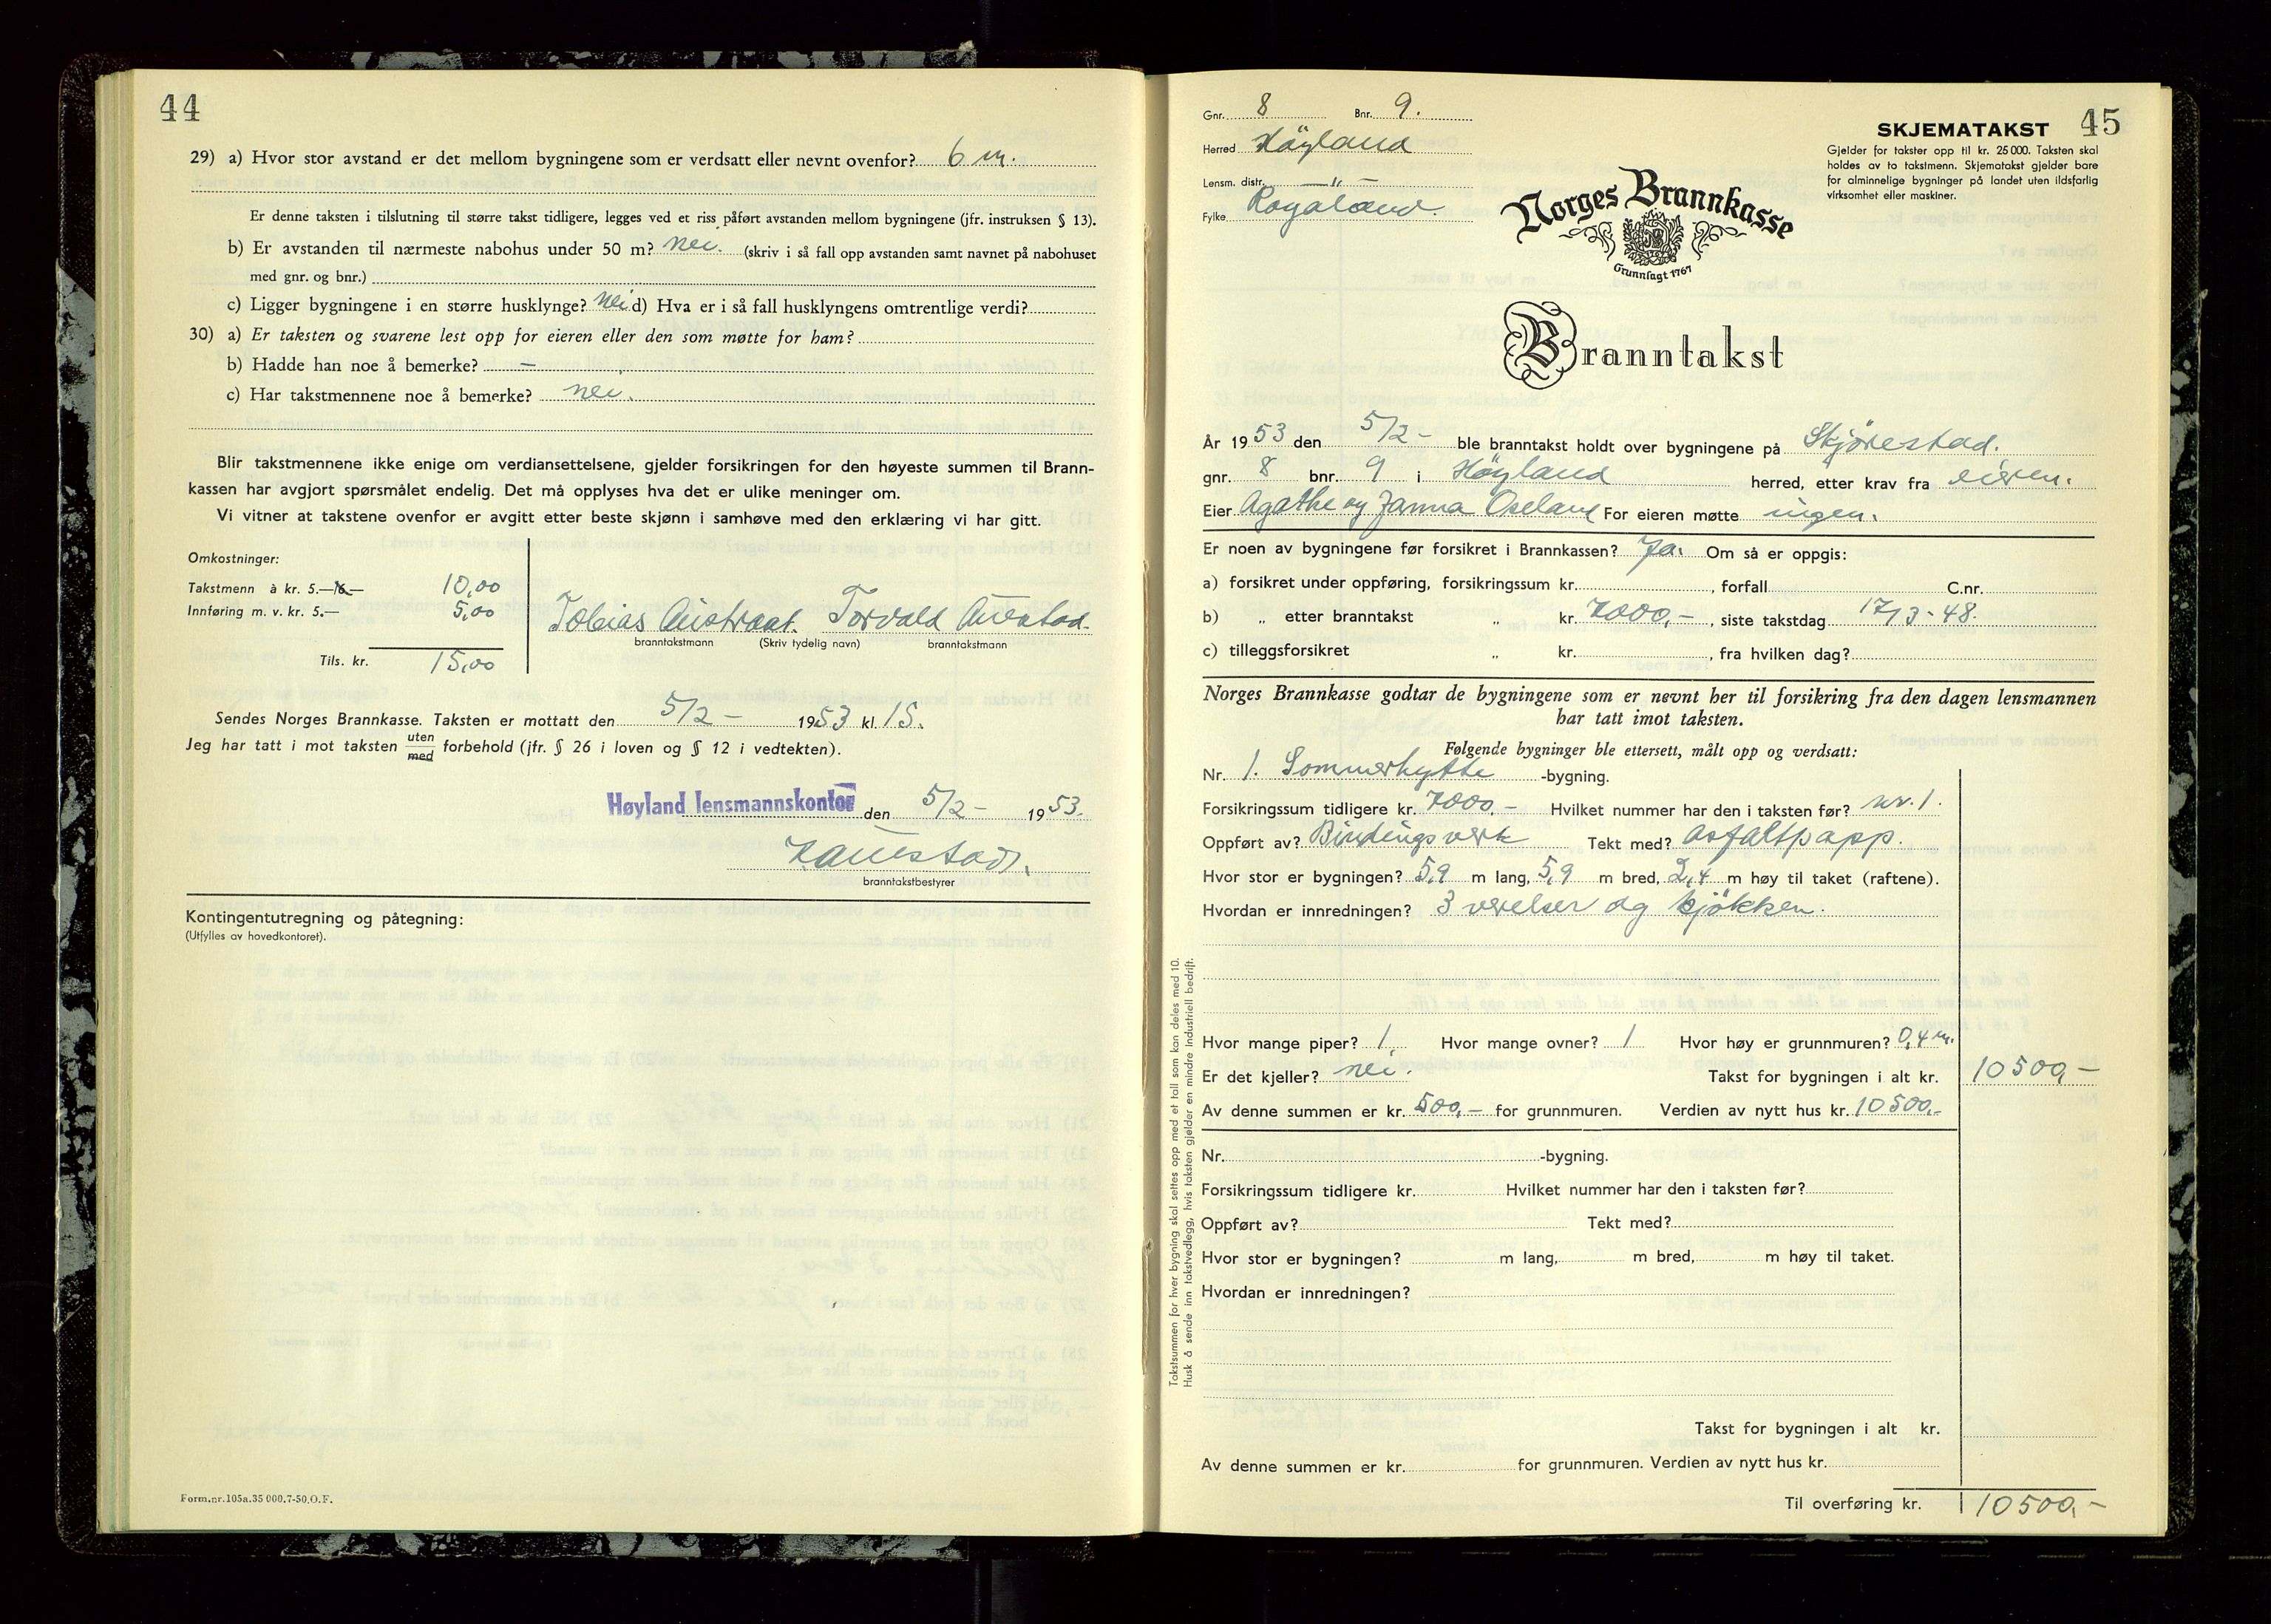 44
29) a) Hvor stor avstand er det mellom bygningene som er verdsatt eller nevnt ovenfor? 6 m.
Er denne taksten i tilslutning til større takst tidligere, legges ved et riss påført avstanden mellom bygningene (jfr. instruksen § 13).
b) Er avstanden til nærmeste nabohus under 50 m? nei. (skriv i så fall opp avstanden samt navnet på nabohuset
med gnr. og bnr.)
c) Ligger bygningene i en større husklynge? nei d) Hva er i så fall husklyngens omtrentlige verdi?
30) a) Er taksten og svarene lest opp for eieren eller den som møtte for ham?
b) Hadde han noe å bemerke? —
c) Har takstmennene noe å bemerke? nei.
Blir takstmennene ikke enige om verdiansettelsene, gjelder forsikringen for den høyeste summen til Brann-
kassen har avgjort spørsmålet endelig. Det må opplyses hva det er ulike meninger om.
Vi vitner at takstene ovenfor er avgitt etter beste skjønn i samhøve med den erklæring vi har gitt.
Omkostninger:
Takstmenn à kr. 5.—16.— 10,00
Innføring m. v. kr. 5.— 5,00
Tils. kr. 15,00
Tobias Austraat. Torvald Auestad.
branntakstmann (Skriv tydelig navn) branntakstmann
Sendes Norges Brannkasse. Taksten er mottatt den 5/2 - 1953 kl. 15.
Jeg har tatt i mot taksten uten/med forbehold (jfr. § 26 i loven og § 12 i vedtekten).
Høyland lensmannskontor den 5/2 - 1953.
branntakstbestyrer
Kontingentutregning og påtegning:
(Utfylles av hovedkontoret).
Form.nr.105a.35 000.7-50.O.F.
45
Gnr. 8 Bnr. 9.
Herred Höyland
Lensm. distr. —„—
Fylke Rogaland.
SKJEMATAKST
Gjelder for takster opp til kr. 25 000. Taksten skal
holdes av to takstmenn. Skjematakst gjelder bare
for alminnelige bygninger på landet uten ildsfarlig
virksomhet eller maskiner.
Norges Brannkasse
Grunnlagt 1767
Branntakst
År 1953 den 5/2 - ble branntakst holdt over bygningene på Skjörestad.
gnr. 8 bnr. 9 i Höyland herred, etter krav fra eieren.
Eier Agathe og Janna Oseland For eieren møtte ingen.
Er noen av bygningene før forsikret i Brannkassen? Ja. Om så er oppgis:
a) forsikret under oppføring, forsikringssum kr. , forfall C.nr.
b) „ etter branntakst „ kr. 7000,- , siste takstdag 17/3 - 48.
c) tilleggsforsikret „ kr. , fra hvilken dag?
Norges Brannkasse godtar de bygningene som er nevnt her til forsikring fra den dagen lensmannen
har tatt imot taksten.
Følgende bygninger ble ettersett, målt opp og verdsatt:
Nr. 1. Sommerhytte -bygning.
Forsikringssum tidligere kr. 7000,- Hvilket nummer har den i taksten før? nr. 1.
Oppført av? Bindingsverk Tekt med? asfaltpapp.
Hvor stor er bygningen? 5,9 m lang, 5,9 m bred, 2,4 m høy til taket (raftene).
Hvordan er innredningen? 3 værelser og kjökken.
Hvor mange piper? 1. Hvor mange ovner? 1 Hvor høy er grunnmuren? 0,4 m.
Er det kjeller? nei. Takst for bygningen i alt kr. 10500,-
Av denne summen er kr. 500,- for grunnmuren. Verdien av nytt hus kr. 10500,-
Nr. -bygning.
Forsikringssum tidligere kr. Hvilket nummer har den i taksten før?
Oppført av? Tekt med?
Hvor stor er bygningen? m lang, m bred, m høy til taket.
Hvordan er innredningen?
Takst for bygningen i alt kr.
Av denne summen er kr. for grunnmuren. Verdien av nytt hus kr.
Til overføring kr. 10500,-
Takstsummen for hver bygning skal settes opp med et tall som kan deles med 10.
Husk å sende inn takstvedlegg, hvis taksten gjelder en mindre industriell bedrift.